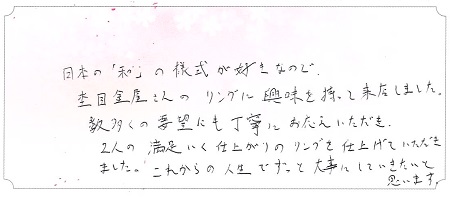 日本の「和」の様式が好きなので、
杢目金屋さんのリングに興味を持って来店しました。
数多くの要望にも丁寧におこたえいただき、
2人の満足いく仕上がりのリングを仕上げていただき
ました。これからの人生でずっと大事にしていきたいと
思います。